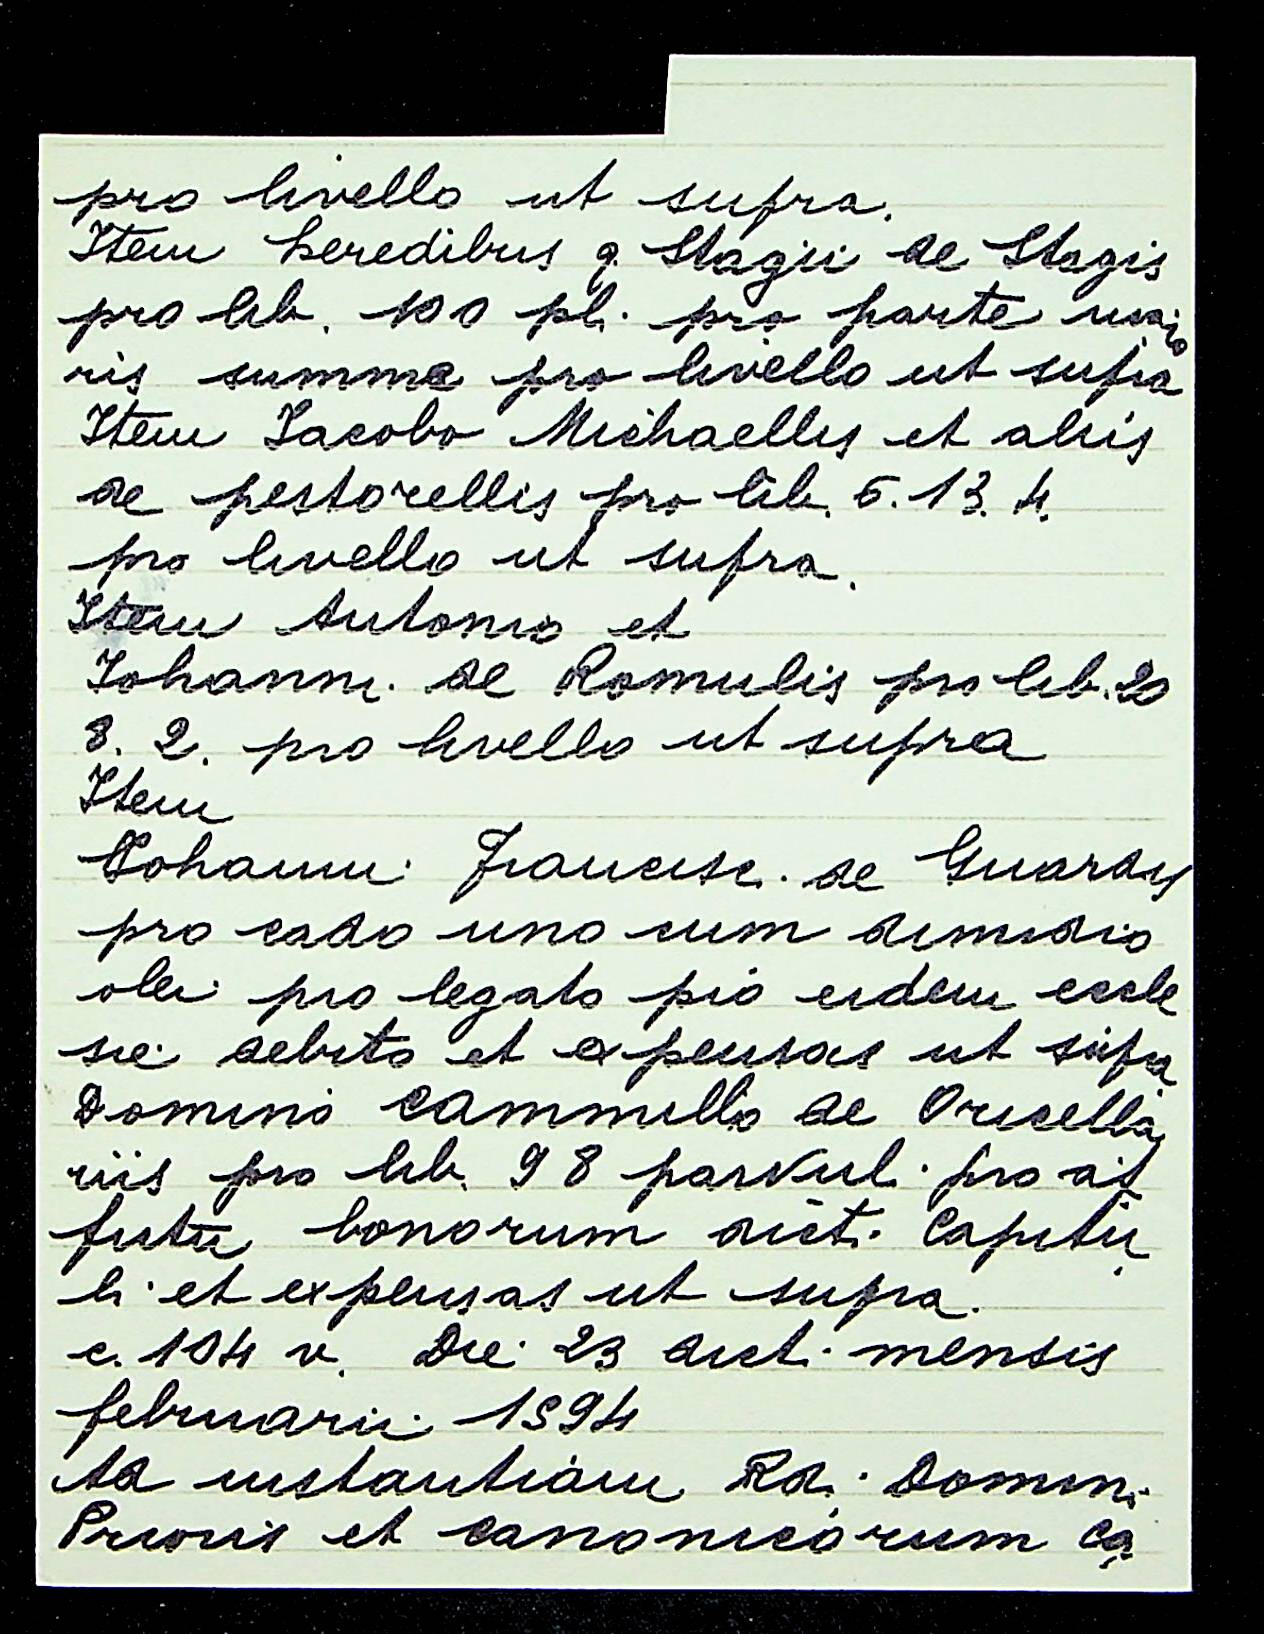 pro livello ut supra.
Item heredibus q. Stagii de Stagis
pro lib. 100 pl. pro parte maio
ris summe pro livello ut supra
Item Iacobo Michaellis et aliis
de pestorellis pro lib. 5. 13. 4.
pro livello ut supra.
Item Antonio et
Iohanni. de Romulis pro lib. 20
8. 2. pro livello ut supra
Item
Iohanni Francisc. de Guardis
pro cado uno cum dimidio
olei pro legato pio eidem eccle
sie debito et expensas ut supra
Domino Cammillo de Oricella
riis pro lib. 98 parvul. pro af
fictu bonorum dict. Capitu
li et expensas ut supra.
c. 104 v. Die 23 dict. mensis
februarii 1594
Ad instantiam Rd. Domin.
Prioris et canonicorum Ca